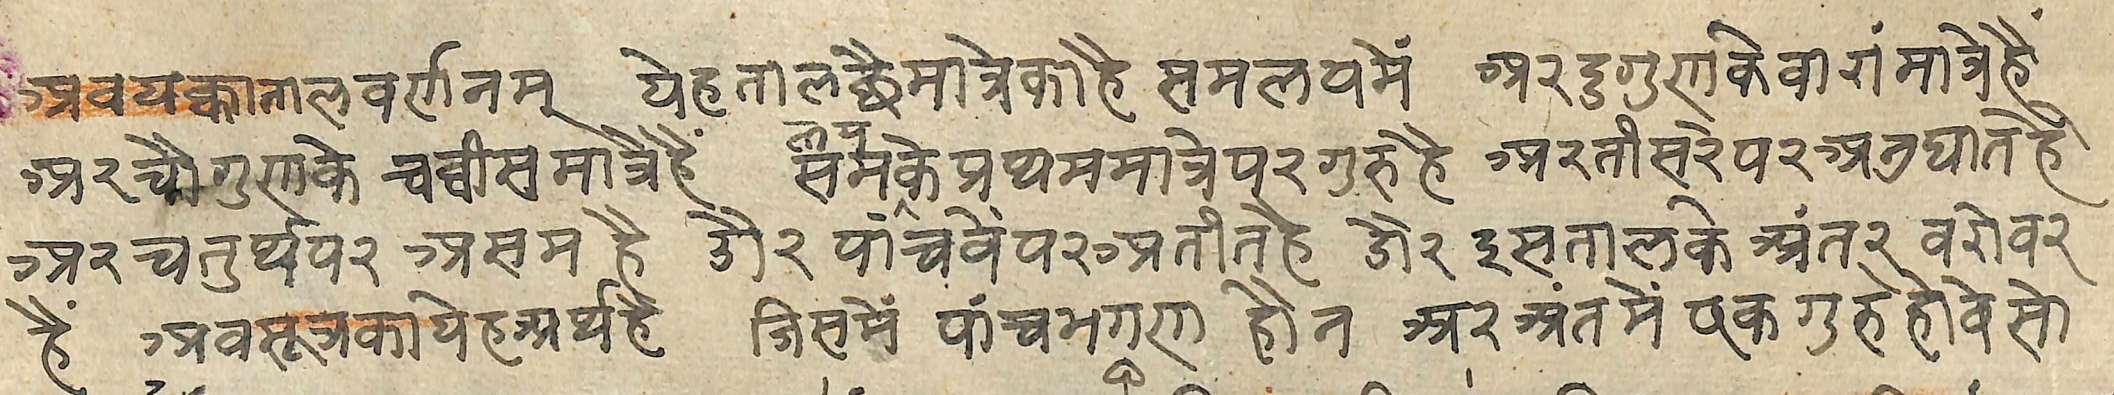 अवयक्कातालवर्णनम् येहतालछैमात्रेकाहै समलयमें अरदुगुणकेबारांमात्रेहैं
अरचौगुणके चव्वीसमात्रेहैं सम लय केप्रथममात्रेपरगुरुहै अरतीसरेपरअनुघातहै
अरचतुर्थपर असम है औौर पांचवेंपरअतीतहै औौर इसतालके अंतर वरोवर
हैं अवसूत्रकायेहअर्थहै जिसमें पांचभगण होंन अर अंतमें एक गुरु होवे सो